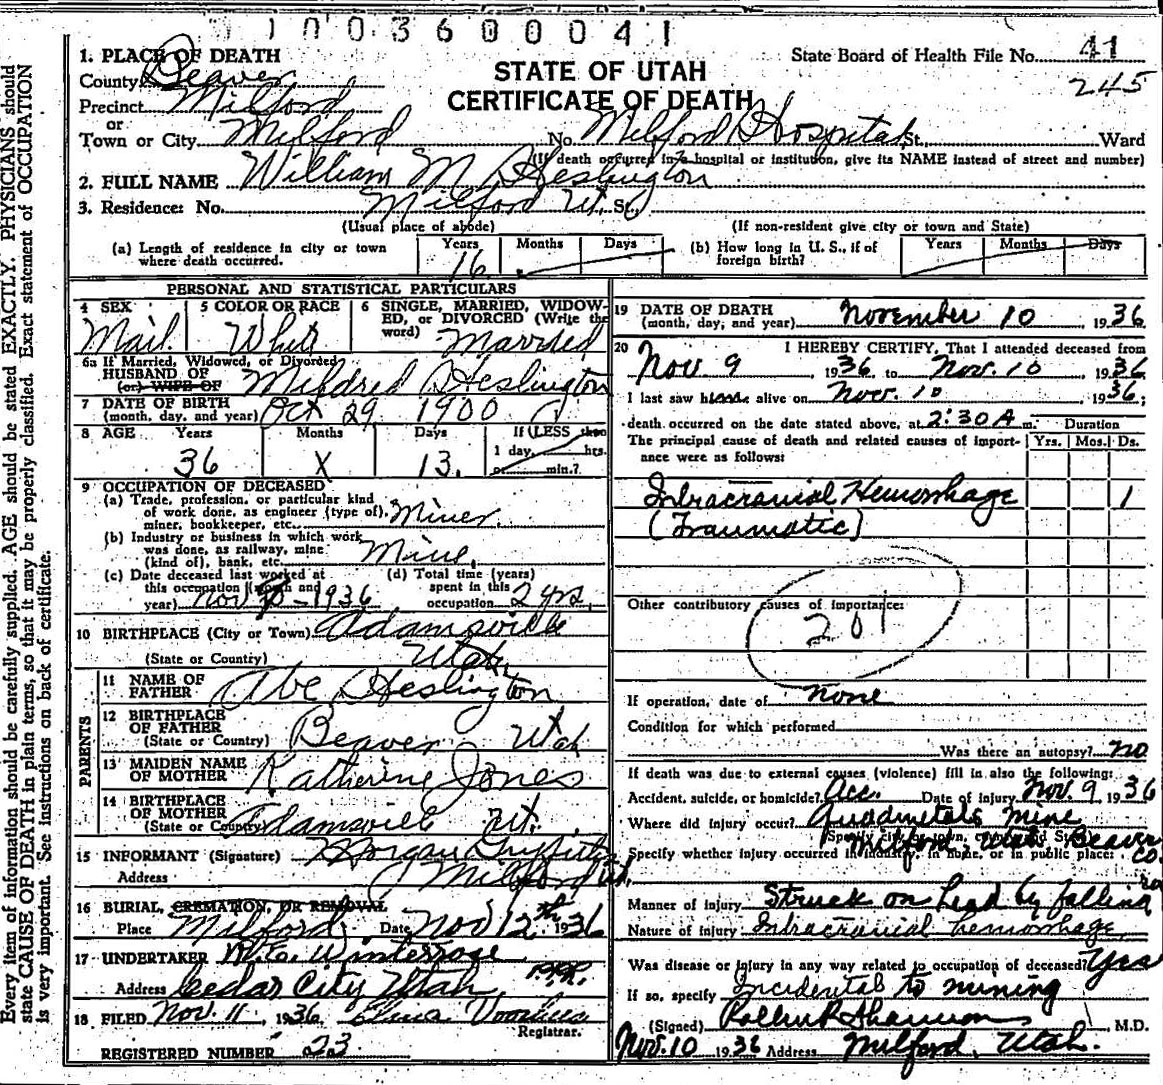 1003600041
State Board of Health File No. 41
245
STATE OF UTAH
CERTIFICATE OF DEATH
Every item of information should be carefully supplied. AGE should be stated EXACTLY. PHYSICIANS should
state CAUSE OF DEATH in plain terms, so that it may be properly classified. Exact statement of OCCUPATION
is very important. See instructions on back of certificate.
1. PLACE OF DEATH
County Beaver
Precinct Milford
or
Town or City Milford No. Milford Hospital St. Ward
(If death occurred in a hospital or institution, give its NAME instead of street and number)
2. FULL NAME William M Heslington
3. Residence: No. Milford Ut. St.
(Usual place of abode) (If non-resident give city or town and State)
(a) Length of residence in city or town where death occurred. Years 16 Months Days
(b) How long in U. S., if of foreign birth? Years Months Days
PERSONAL AND STATISTICAL PARTICULARS
4 SEX Mail
5 COLOR OR RACE White
6 SINGLE, MARRIED, WIDOWED, or DIVORCED (Write the word) Married
6a If Married, Widowed, or Divorced
HUSBAND OF
(or) WIFE OF Mildred Heslington
7 DATE OF BIRTH
(month, day, and year) Oct 29 1900
8 AGE Years 36 Months X Days 13. If LESS than 1 day, hrs. or min.?
9 OCCUPATION OF DECEASED
(a) Trade, profession, or particular kind of work done, as engineer (type of), miner, bookkeeper, etc. Miner
(b) Industry or business in which work was done, as railway, mine (kind of), bank, etc. Mine
(c) Date deceased last worked at this occupation (month and year) Nov 1936
(d) Total time (years) spent in this occupation 2 yrs.
10 BIRTHPLACE (City or Town) Adamsville
(State or Country) Utah
PARENTS
11 NAME OF FATHER Abe Heslington
12 BIRTHPLACE OF FATHER (State or Country) Beaver Utah
13 MAIDEN NAME OF MOTHER Katherine Jones
14 BIRTHPLACE OF MOTHER (State or Country) Adamsville Ut.
15 INFORMANT (Signature) Morgan Griffiths
Address Milford Ut.
16 BURIAL, CREMATION, OR REMOVAL
Place Milford Date Nov 12th 1936
17 UNDERTAKER Winterrose
Address Cedar City Utah
18 FILED Nov. 11, 1936 Elina
Registrar.
REGISTERED NUMBER 23
19 DATE OF DEATH
(month, day, and year) November 10 1936
20 I HEREBY CERTIFY, That I attended deceased from
Nov. 9 1936 to Nov. 10 1936
I last saw him alive on Nov. 10 1936;
death occurred on the date stated above, at 2:30 A m. Duration
The principal cause of death and related causes of importance were as follows: Yrs. Mos. Ds.
Intracranial Hemorrhage 1
(Traumatic)
Other contributory causes of importance:
201
If operation, date of none
Condition for which performed
Was there an autopsy? no
If death was due to external causes (violence) fill in also the following:
Accident, suicide, or homicide? Acc. Date of Injury Nov. 9 1936
Where did injury occur? Quadmetals mine
(Specify city or town, county and State)
Milford, Utah Beaver Co.
Specify whether injury occurred in industry, in home, or in public place:
Manner of injury Struck on head by falling
Nature of injury Intracranial hemorrhage
Was disease or injury in any way related to occupation of deceased? Yes
If so, specify Incidental to mining
(Signed) Shannon, M.D.
Nov. 10 1936 Address Milford, Utah.